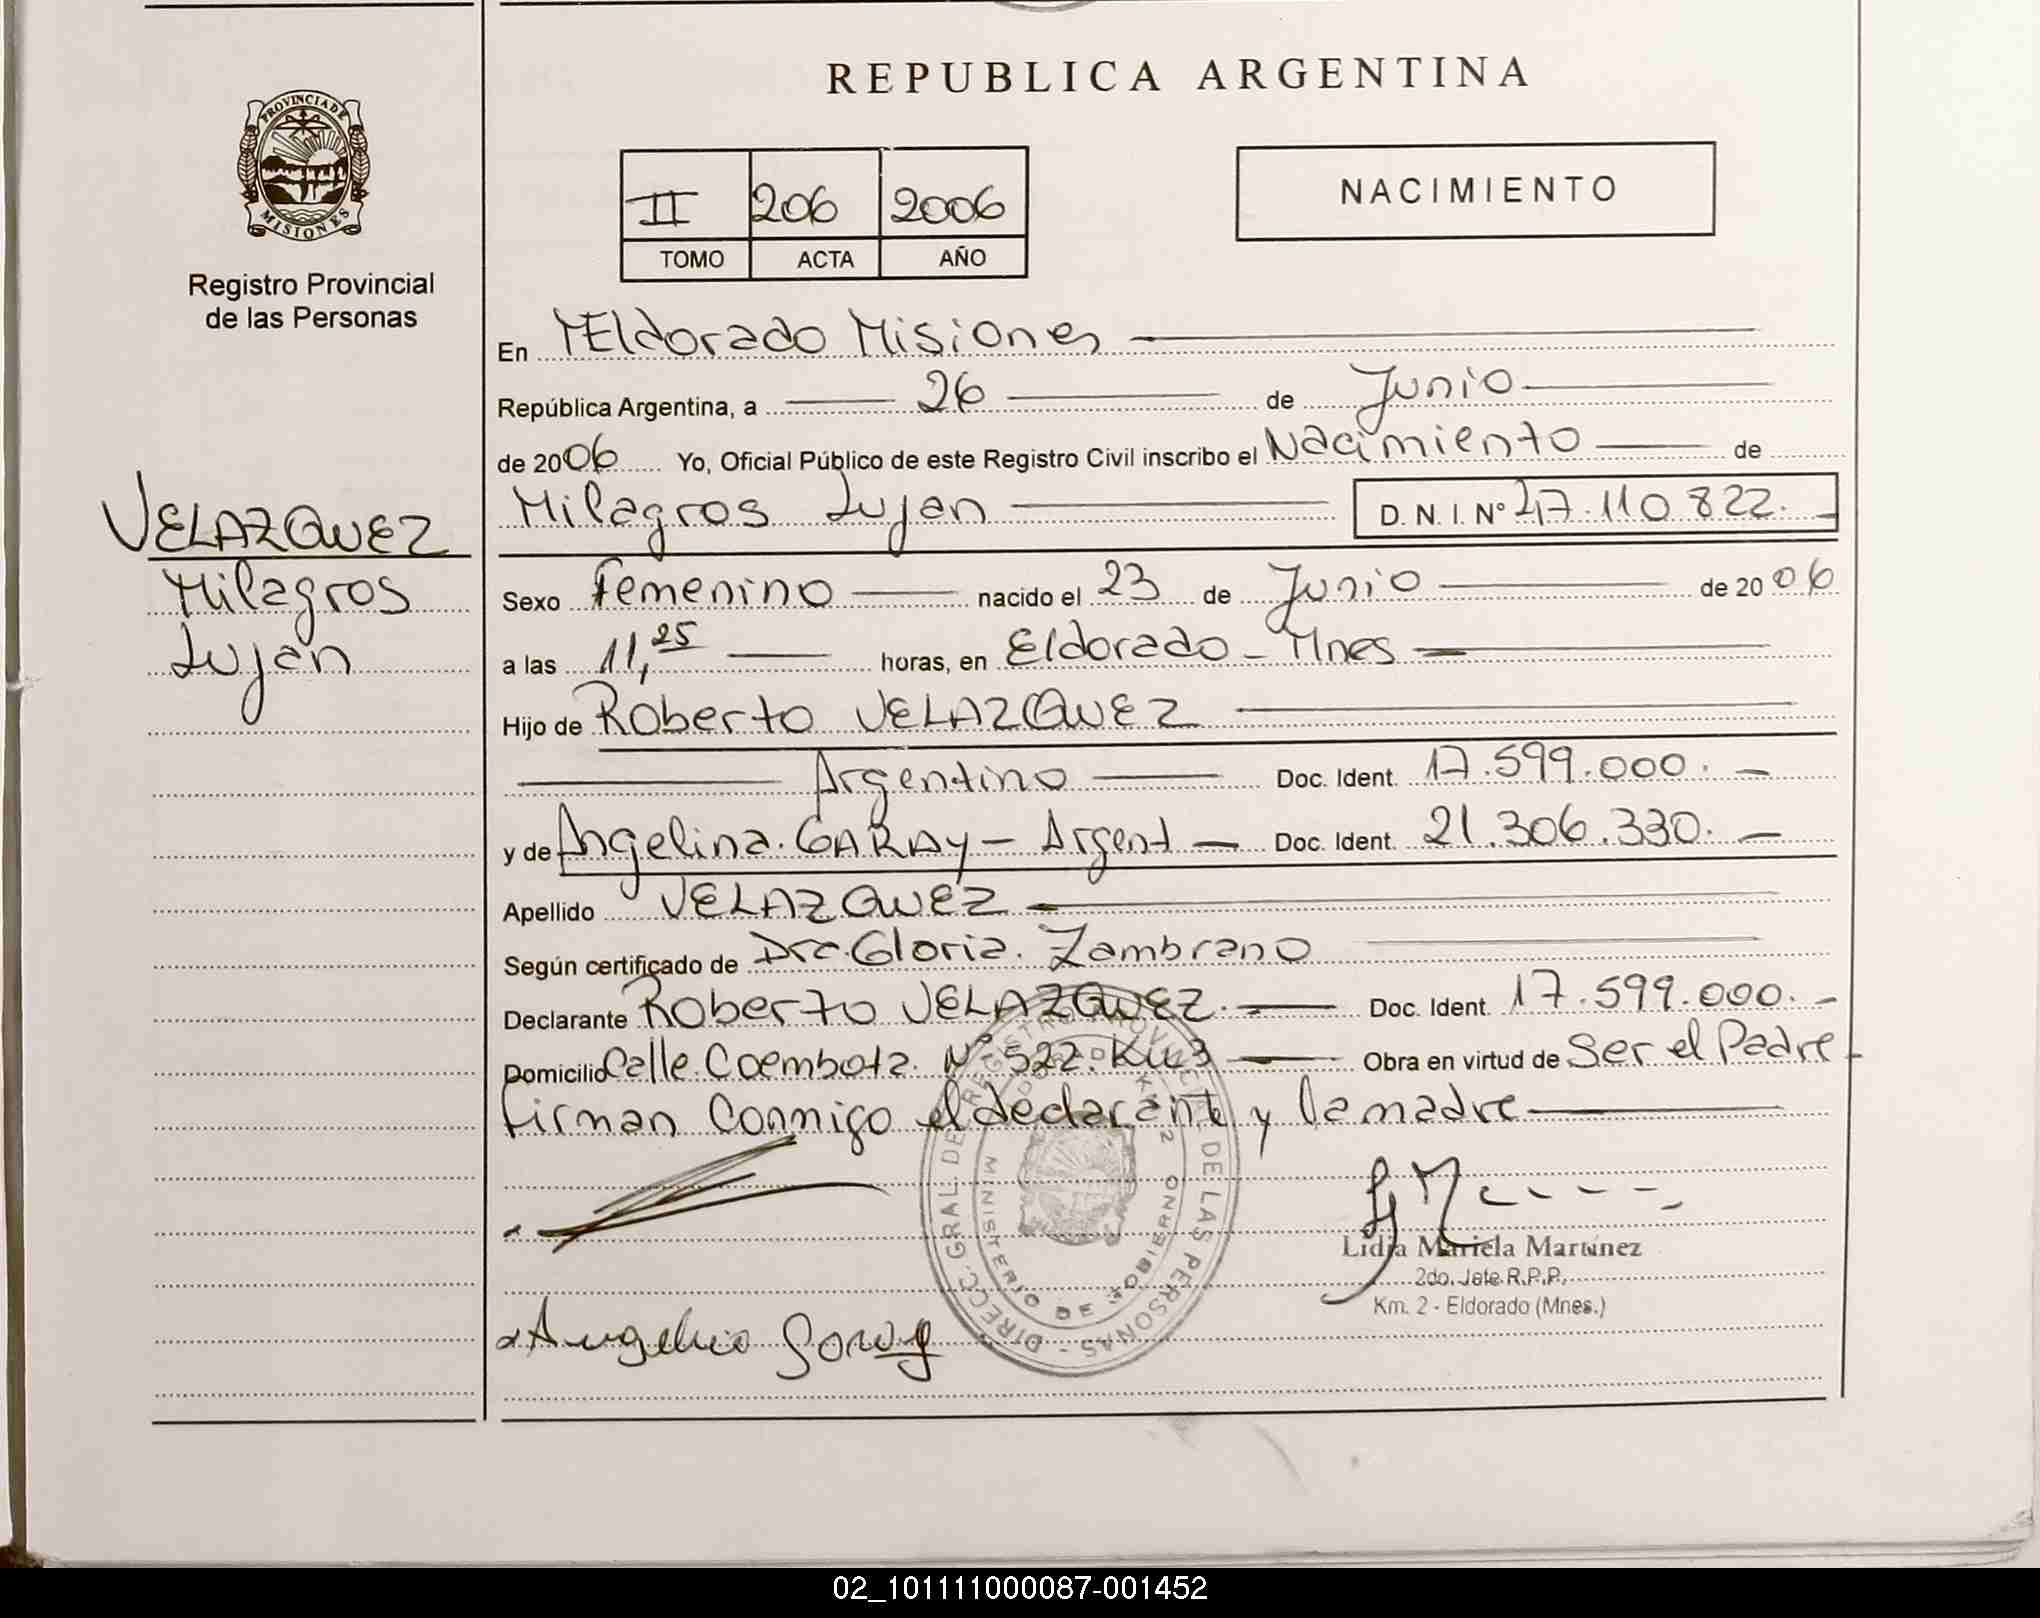 REPUBLICA ARGENTINA
PROVINCIA DE
MISIONES
Registro Provincial
de las Personas
II 206 2006
TOMO ACTA AÑO
NACIMIENTO
En Eldorado Misiones
República Argentina, a 26 de Junio
de 2006 Yo, Oficial Público de este Registro Civil inscribo el Nacimiento de
Milagros Lujan D. N. I. Nº 47.110.822.
VELAZQUEZ
Milagros
Lujan
Sexo Femenino nacido el 23 de Junio de 2006
a las 11,25 horas, en Eldorado - Mnes
Hijo de Roberto VELAZQUEZ
Argentino Doc. Ident. 17.599.000.
y de Angelina GARAY - Argent Doc. Ident. 21.306.330.
Apellido VELAZQUEZ
Según certificado de Dra. Gloria Zambrano
Declarante Roberto VELAZQUEZ. Doc. Ident. 17.599.000.
Domicilio Calle Caembota Nº 522. Km 3 Obra en virtud de Ser el Padre
Firman Conmigo el declarante y la madre
DIRECC. GRAL. DE REGISTRO PROVINCIAL DE LAS PERSONAS
MINISTERIO DE GOBIERNO
Lidia Mariela Martinez
2do. Jefe R.P.P.
Km. 2 - Eldorado (Mnes.)
02_101111000087-001452